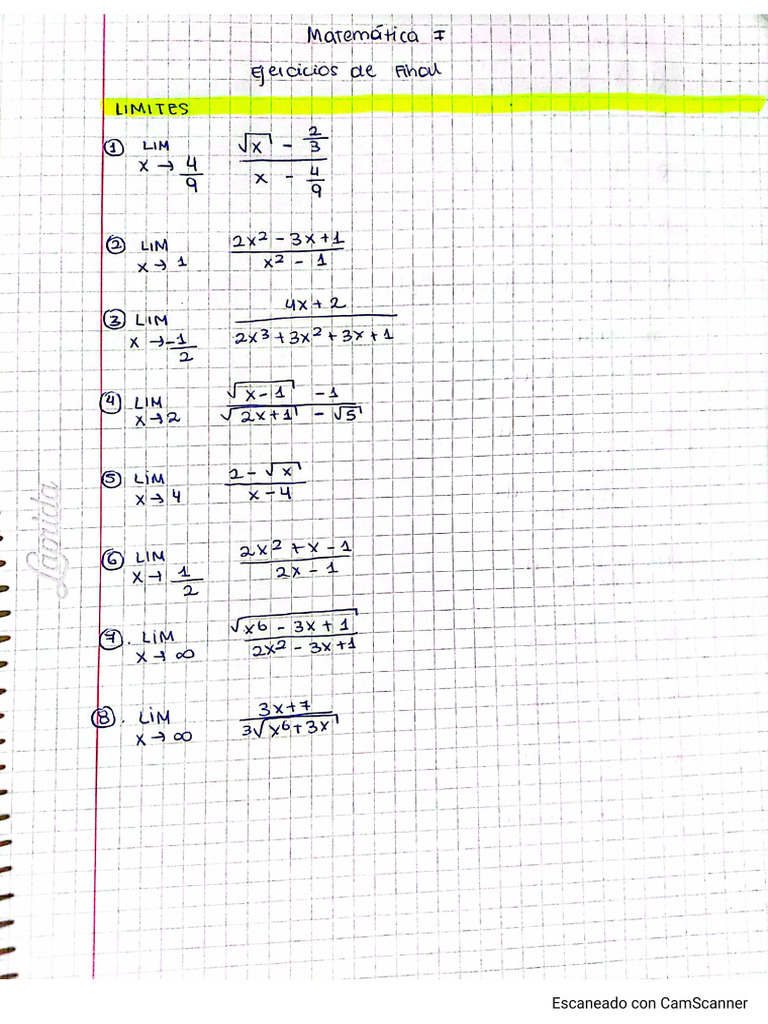 Matemática I
Ejercicios de Final
LIMITES
① LIM x → 4/9 (√x - 2/3) / (x - 4/9)
② LIM x → 1 (2x² - 3x + 1) / (x² - 1)
③ LIM x → -1/2 (4x + 2) / (2x³ + 3x² + 3x + 1)
④ LIM x → 2 (√(x - 1) - 1) / (√(2x + 1) - √5)
⑤ LIM x → 4 (2 - √x) / (x - 4)
⑥ LIM x → 1/2 (2x² + x - 1) / (2x - 1)
⑦. LIM x → ∞ √(x⁶ - 3x + 1) / (2x² - 3x + 1)
⑧. LIM x → ∞ (3x + 7) / (3√(x⁶ + 3x))
Laprida
Escaneado con CamScanner